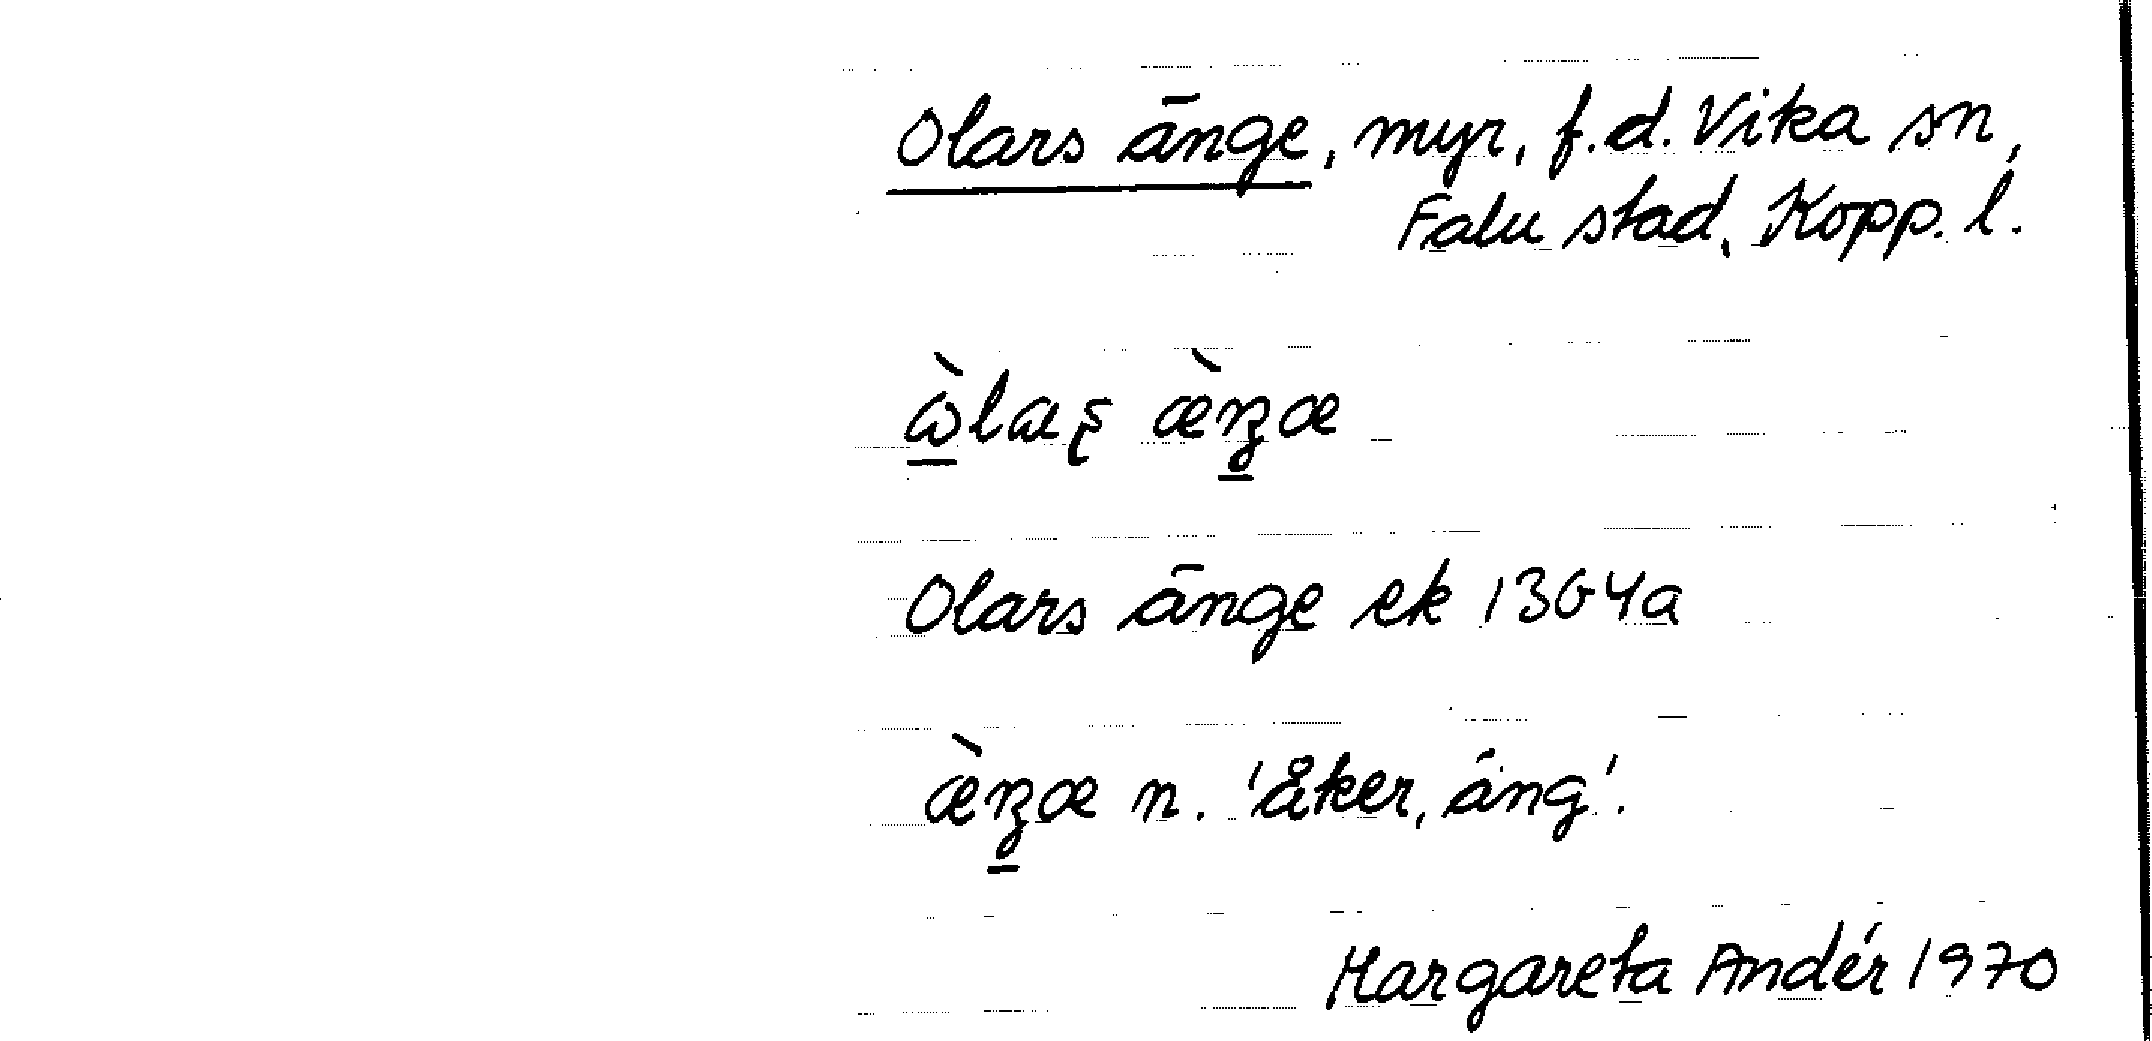 Olars änge, myr, f.d. Vika sn,
Falu stad, Kopp. l.
Olars änge ek 1364a
n. 'åker, äng'.
Margareta Andér 1970